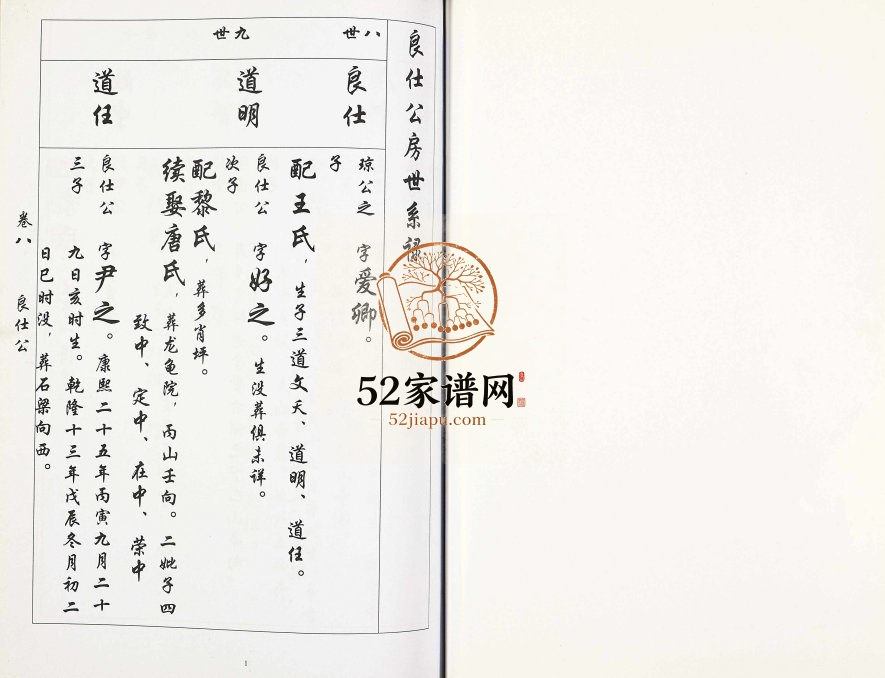 良仕公房世系禄
八世
良仕
琼公之
子
字爱卿。
配王氏，生子三道文夭、道明、道任。
九世
道明
良仕公
次子
字好之。生没葬俱未详。
配黎氏，葬多肖坪。
续娶唐氏，葬龙龟院，丙山壬向。二妣子四
致中、定中、在中、荣中
道任
良仕公
三子
字尹之。康熙二十五年丙寅九月二十
九日亥时生。乾隆十三年戊辰冬月初二
日巳时没，葬石梁向西。
卷八 良仕公
1
52家谱网
52jiapu.com